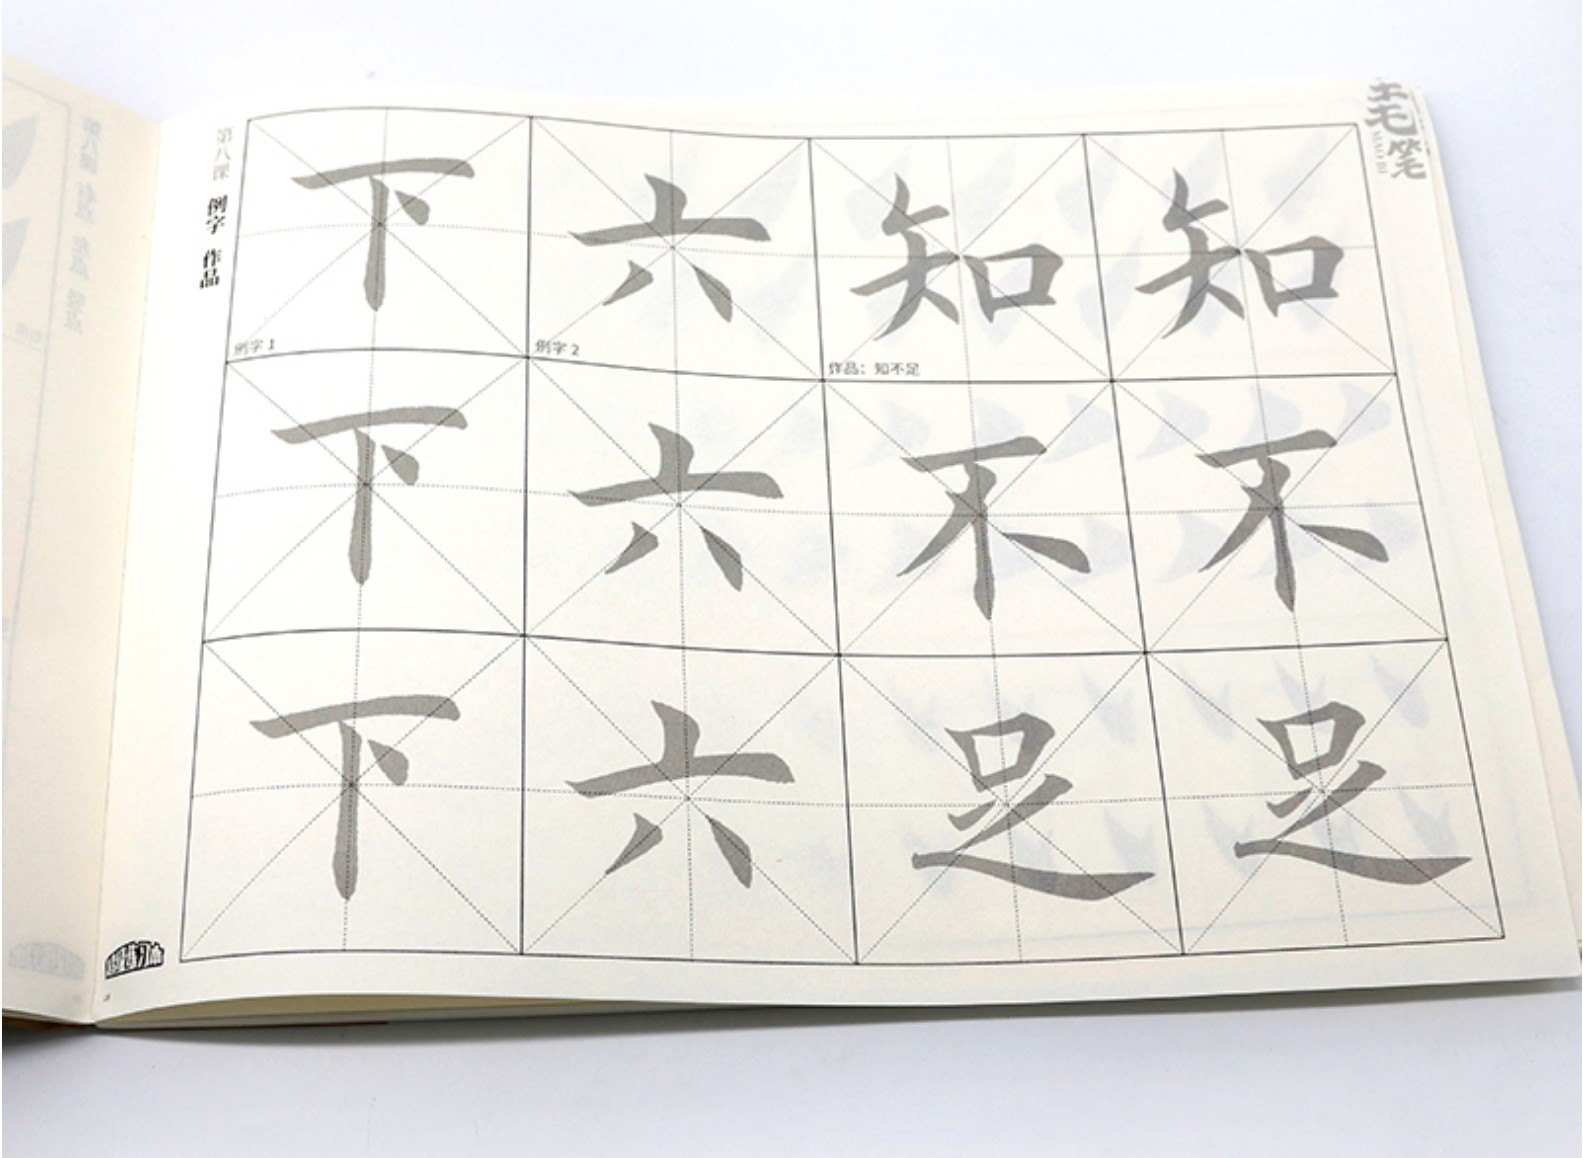 第八课 例字 作品
毛笔
MAO BI
下 六 知 知
例字 1
例字 2
作品：知不足
下 六 不 不
下 六 足 足